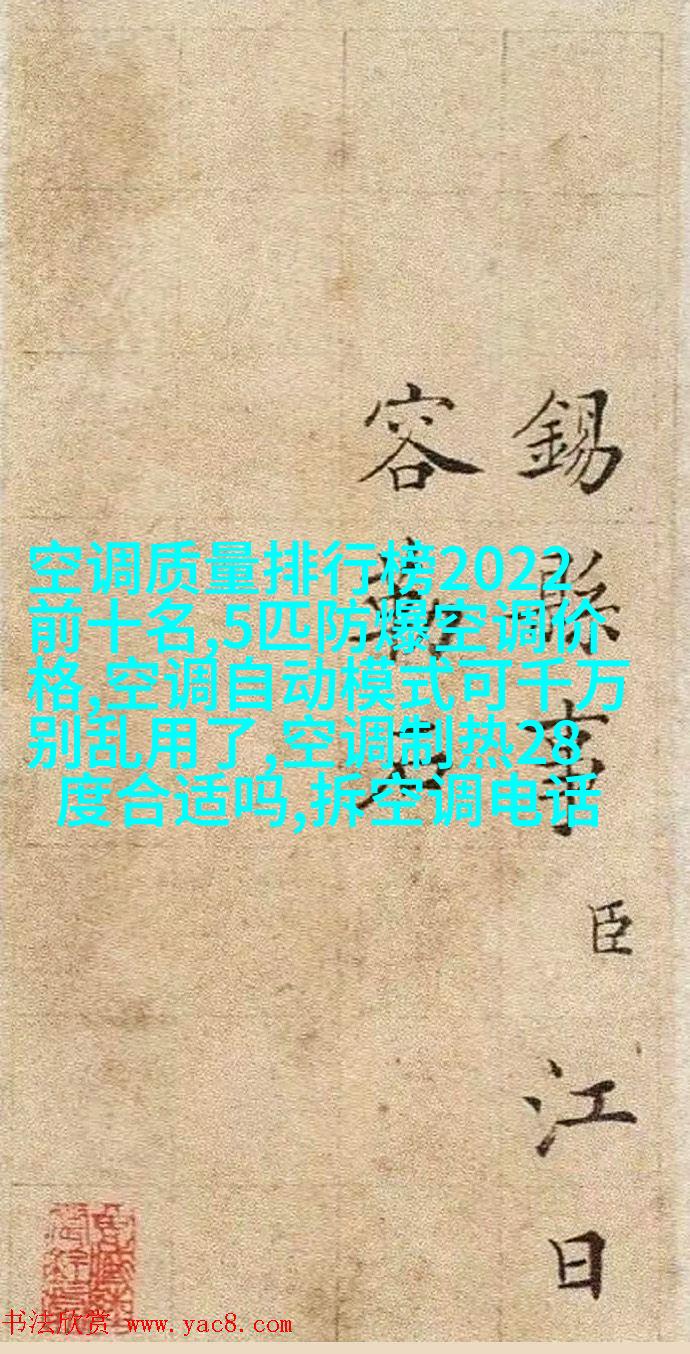 空调质量排行榜2022
前十名,5匹防爆空调价
格,空调自动模式可千万
别乱用了,空调制热28
度合适吗,拆空调电话
錫縣
臣江日
容
书法欣赏 www.yac8.com